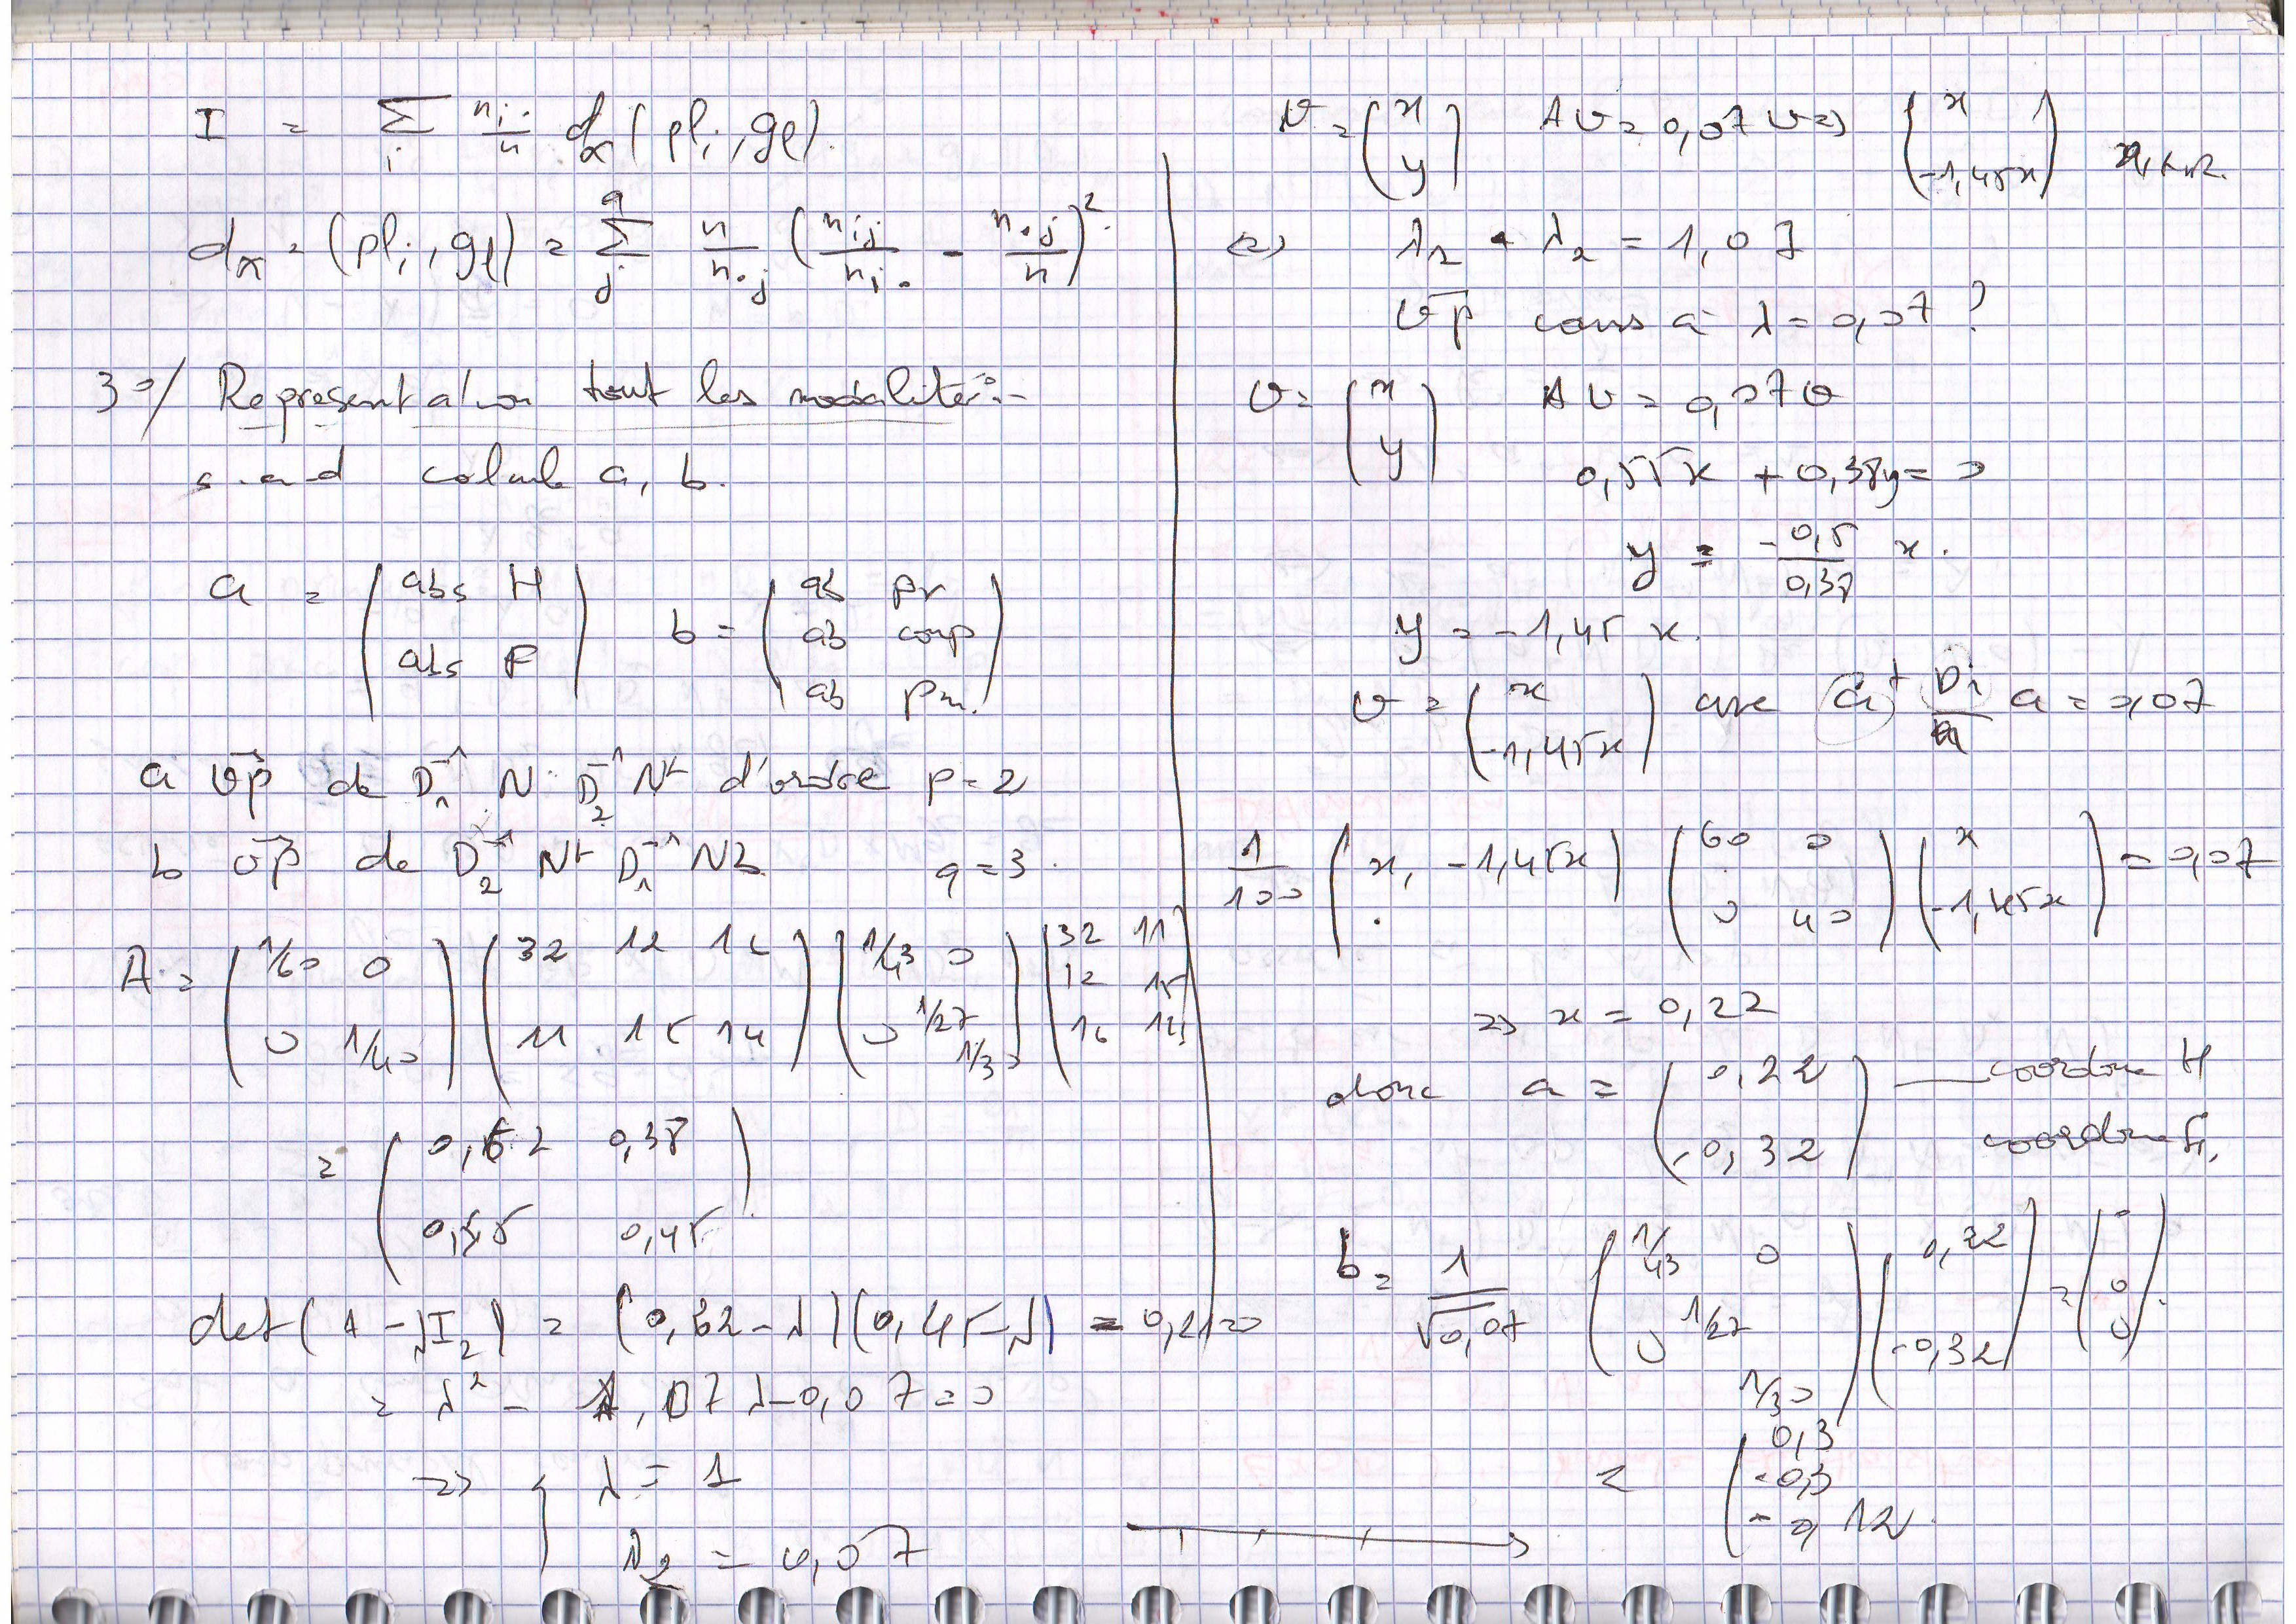 I = Σ_i n_i./n d_x(pl_i, gl).
d_x = (pl_i, gl) = Σ_j^q n/n_.j (n_ij/n_i. - n_.j/n)².
3°/ Representation tout les modalités:-
s.a.d calcule a, b.
a = (abs H
abs F) b = (ab pr
ab comp
ab pm.)
a vp de D₁⁻¹ N D₂⁻¹ Nᵗ d'ordre p=2
b vp de D₂⁻¹ Nᵗ D₁⁻¹ Nb q=3.
A = (1/60 0
0 1/40) (32 12 16
11 15 14) (1/43 0
0 1/27
1/30) (32 11
12 15
16 14)
= (0,62 0,38
0,55 0,45)
det(A - λI₂) = (0,62-λ)(0,45-λ) - 0,21=0
= λ² - 1,07λ-0,07=0
=> { λ = 1
λ₂ = 0,07
v = (x
y) Av = 0,07v => (x
-1,45x)
<=> λ₁ + λ₂ = 1,07
vp corrs à λ=0,07 ?
v = (x
y) Av = 0,07v
0,55x + 0,38y=0
y = -0,5/0,38 x.
y = -1,45 x.
v = (x
-1,45x) avec aᵗ Di/n a = 0,07
1/100 (x, -1,45x) (60 0
0 40) (x
-1,45x) = 0,07
=> x = 0,22
donc a = (0,22
-0,32) — coordone H
coordone F,
b = 1/√0,07 (1/43 0
0 1/27
1/30) (0,22
-0,32) = (0
0
0).
= (0,3
-0,3
-0,12